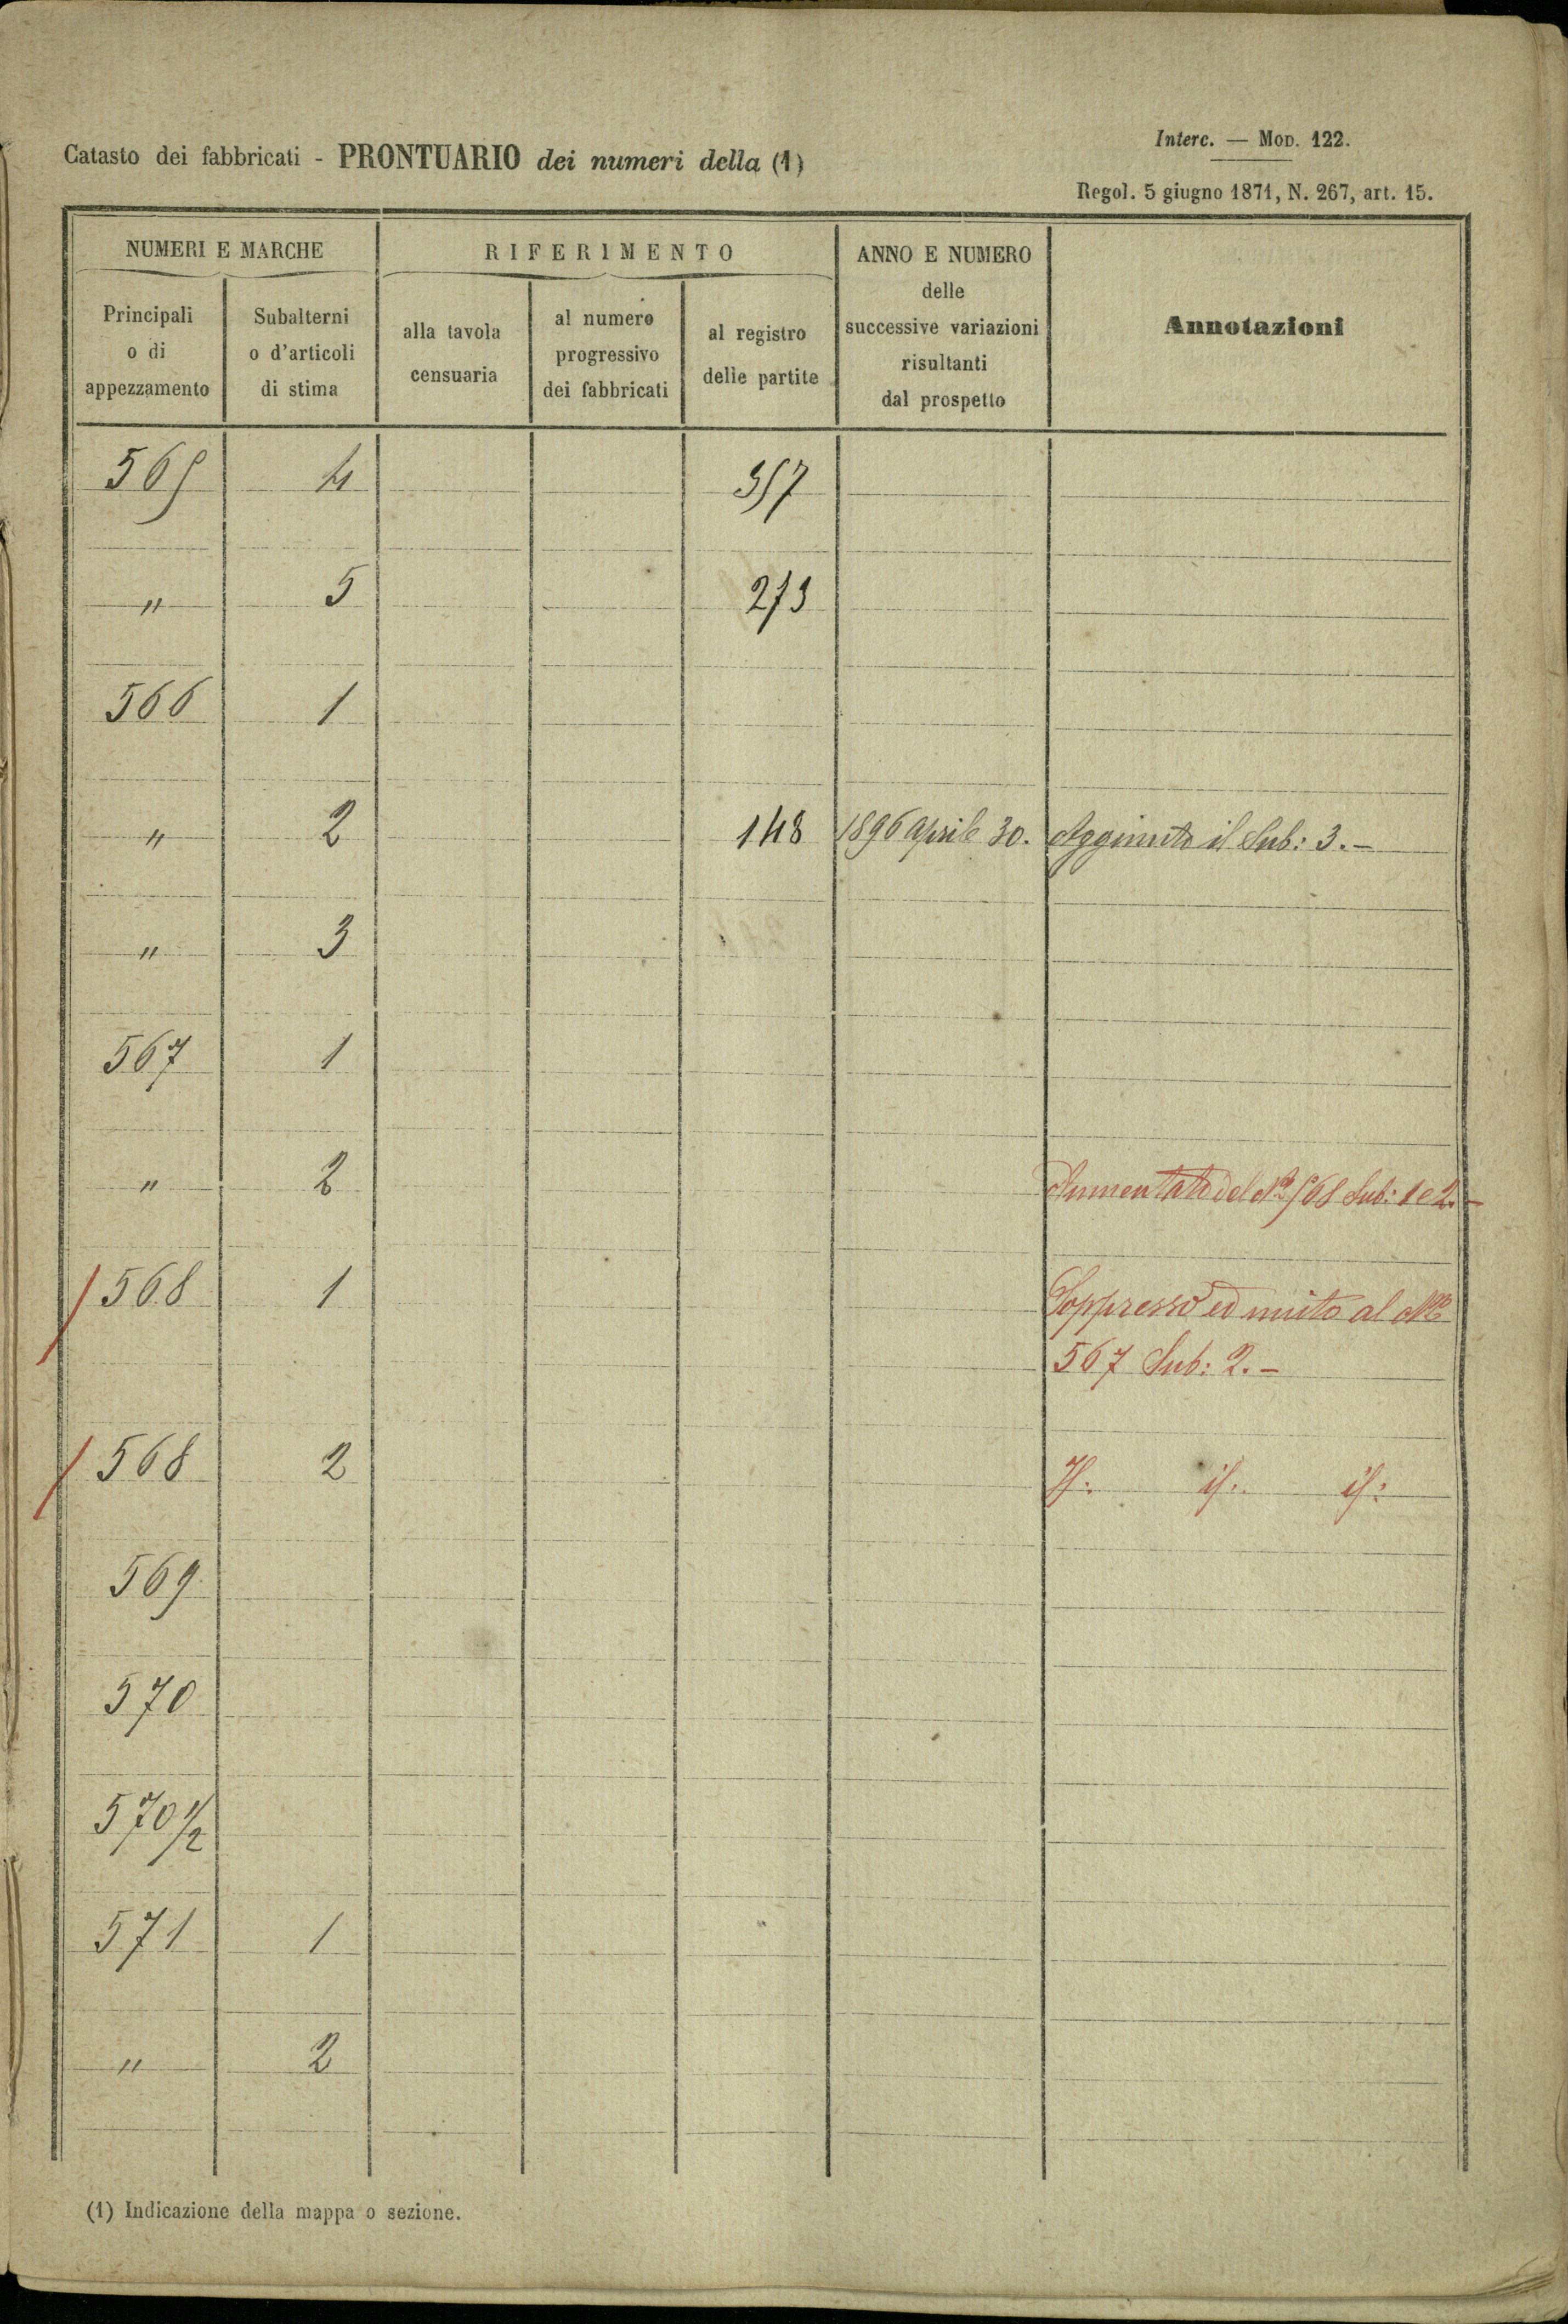 Catasto dei fabbricati - PRONTUARIO dei numeri della (1)
Interc. — Mod. 122.
Regol. 5 giugno 1871, N. 267, art. 15.
NUMERI E MARCHE
RIFERIMENTO
ANNO E NUMERO
delle
successive variazioni
risultanti
dal prospetto
Annotazioni
Principali
o di
appezzamento
Subalterni
o d'articoli
di stima
alla tavola
censuaria
al numero
progressivo
dei fabbricati
al registro
delle partite
565 4 357
" 5 273
566 1
" 2 148 1896 Aprile 30. Aggiunto il Sub: 3.-
" 3
567 1
" 2 Aumentato del No 568 Sub: 1 e 2.-
568 1 Soppresso ed unito al No
567 Sub: 2.-
568 2 Id: id: id:
569
570
570 1/2
571 1
" 2
(1) Indicazione della mappa o sezione.